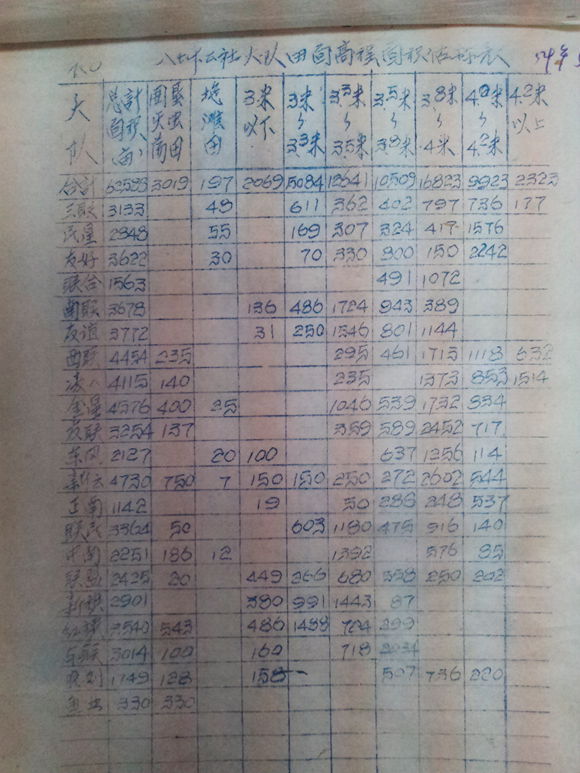 八士公社大队田面高程面积
大队 总计面积(亩) 围垦 田 滩田 3米以下 3米~3.3米 3.3米~3.5米 3.5米~3.8米 3.8米~4米 4.0米~4.2米 4.2米以上
合计 3019 197 2069 5084 12641 10509 16823 9923 2323
三联 3133 49 611 362 402 797 736 177
民星 2848 55 169 307 324 417 1576
友好 3622 30 70 330 800 150 2242
联合 1563 491 1072
南联 3678 136 486 1724 943 389
友谊 3772 31 250 1546 801 1144
西联 4454 235 295 461 1713 1118 632
4115 140 235 1373 853 1514
金星 4576 400 25 1046 539 1732 834
3254 137 359 589 2452 717
东风 2127 20 100 637 1256 114
4730 750 7 150 150 250 272 2602 544
正南 1142 19 50 288 248 537
联民 3364 50 603 1180 475 916 140
中南 2251 186 12 1392 576 85
2425 20 449 266 680 358 250 202
2901 380 991 1443 87
2540 543 486 1488 724 299
3014 100 160 718 2034
1749 128 158 507 736 220
330 330